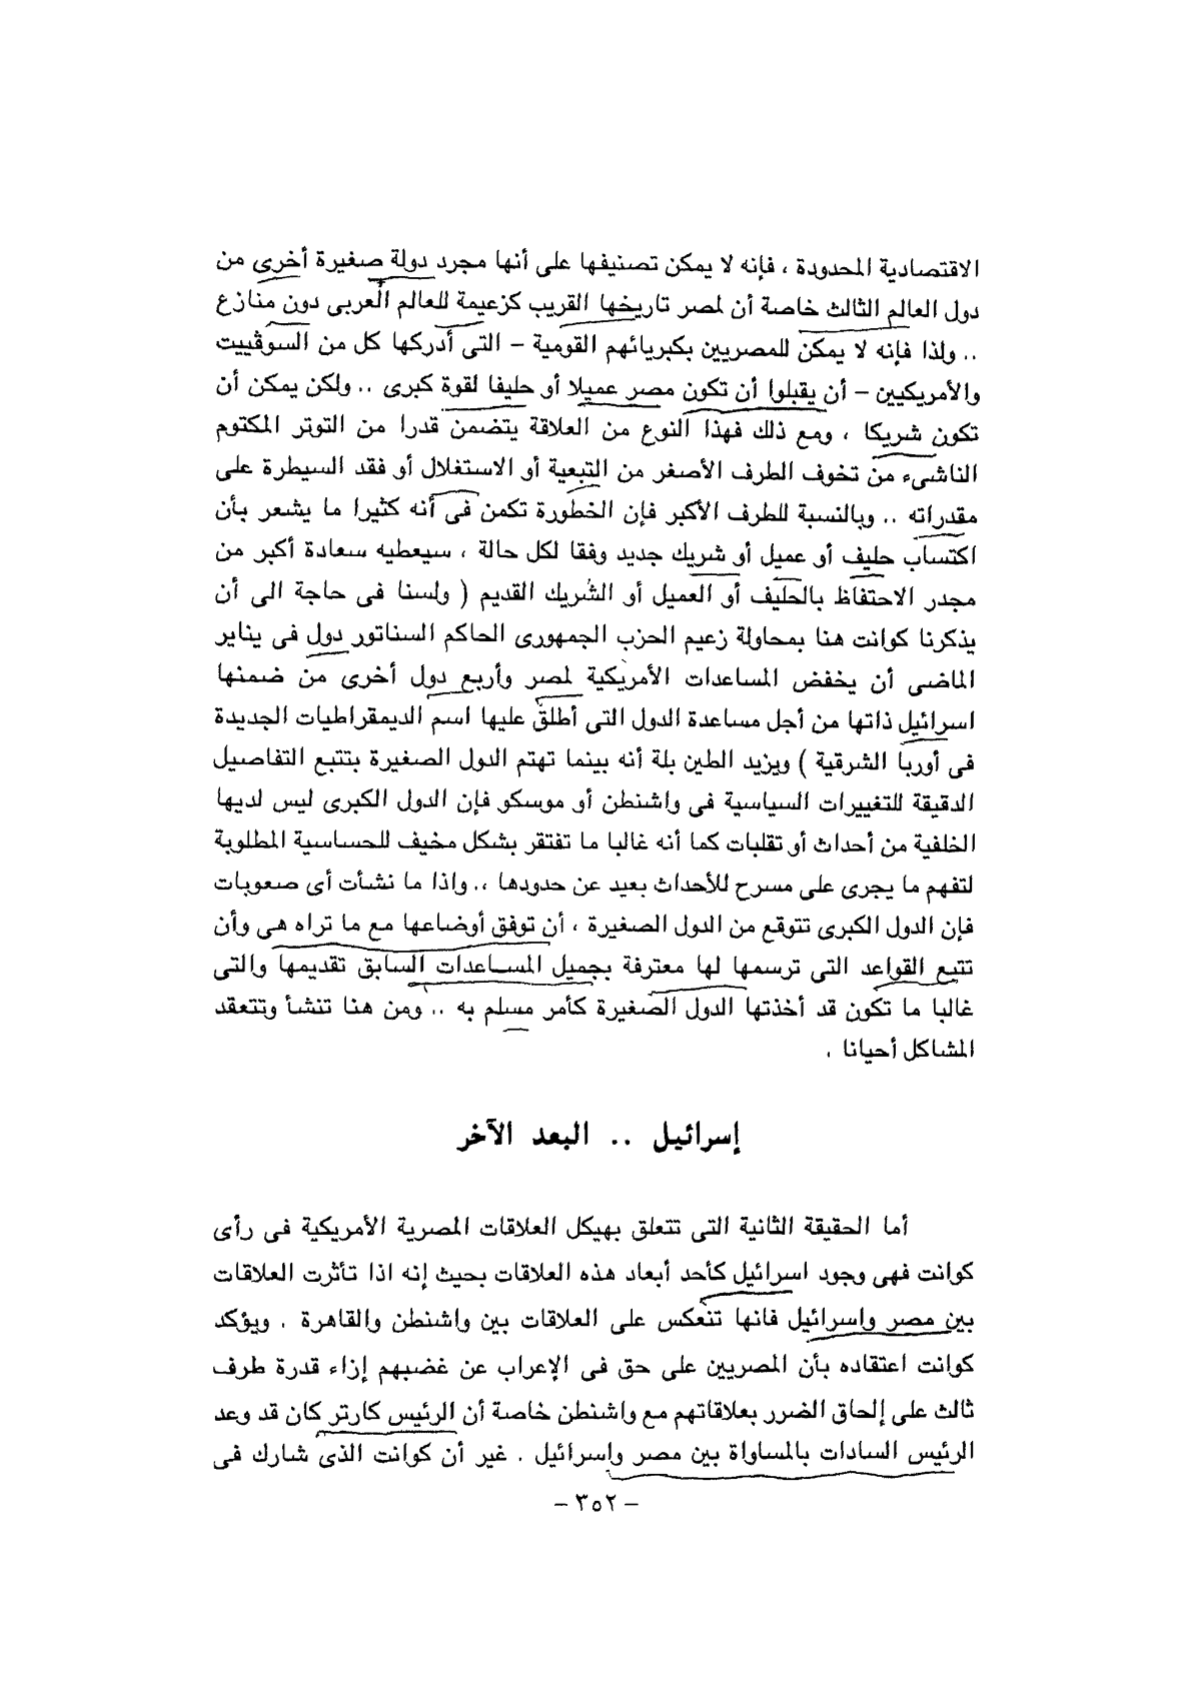 الاقتصادية المحدودة ، فإنه لا يمكن تصنيفها على أنها مجرد دولة صغيرة أخرى من
دول العالم الثالث خاصة أن لمصر تاريخها القريب كزعيمة للعالم العربى دون منازع
.. ولذا فإنه لا يمكن للمصريين بكبريائهم القومية – التى أدركها كل من السوڤييت
والأمريكيين – أن يقبلوا أن تكون مصر عميلا أو حليفا لقوة كبرى .. ولكن يمكن أن
تكون شريكا ، ومع ذلك فهذا النوع من العلاقة يتضمن قدرا من التوتر المكتوم
الناشىء من تخوف الطرف الأصغر من التبعية أو الاستغلال أو فقد السيطرة على
مقدراته .. وبالنسبة للطرف الأكبر فإن الخطورة تكمن فى أنه كثيرا ما يشعر بأن
اكتساب حليف أو عميل أو شريك جديد وفقا لكل حالة ، سيعطيه سعادة أكبر من
مجدر الاحتفاظ بالحليف أو العميل أو الشريك القديم ( ولسنا فى حاجة الى أن
يذكرنا كوانت هنا بمحاولة زعيم الحزب الجمهورى الحاكم السناتور دول فى يناير
الماضى أن يخفض المساعدات الأمريكية لمصر وأربع دول أخرى من ضمنها
اسرائيل ذاتها من أجل مساعدة الدول التى أطلق عليها اسم الديمقراطيات الجديدة
فى أوربا الشرقية ) ويزيد الطين بلة أنه بينما تهتم الدول الصغيرة بتتبع التفاصيل
الدقيقة للتغييرات السياسية فى واشنطن أو موسكو فإن الدول الكبرى ليس لديها
الخلفية من أحداث أو تقلبات كما أنه غالبا ما تفتقر بشكل مخيف للحساسية المطلوبة
لتفهم ما يجرى على مسرح للأحداث بعيد عن حدودها .. واذا ما نشأت أى صعوبات
فإن الدول الكبرى تتوقع من الدول الصغيرة ، أن توفق أوضاعها مع ما تراه هى وأن
تتبع القواعد التى ترسمها لها معترفة بجميل المساعدات السابق تقديمها والتى
غالبا ما تكون قد أخذتها الدول الصغيرة كأمر مسلم به .. ومن هنا تنشأ وتتعقد
المشاكل أحيانا .
إسرائيل .. البعد الآخر
أما الحقيقة الثانية التى تتعلق بهيكل العلاقات المصرية الأمريكية فى رأى
كوانت فهى وجود اسرائيل كأحد أبعاد هذه العلاقات بحيث إنه اذا تأثرت العلاقات
بين مصر واسرائيل فانها تنعكس على العلاقات بين واشنطن والقاهرة . ويؤكد
كوانت اعتقاده بأن المصريين على حق فى الإعراب عن غضبهم إزاء قدرة طرف
ثالث على إلحاق الضرر بعلاقاتهم مع واشنطن خاصة أن الرئيس كارتر كان قد وعد
الرئيس السادات بالمساواة بين مصر وإسرائيل . غير أن كوانت الذى شارك فى
– ٣٥٢ –